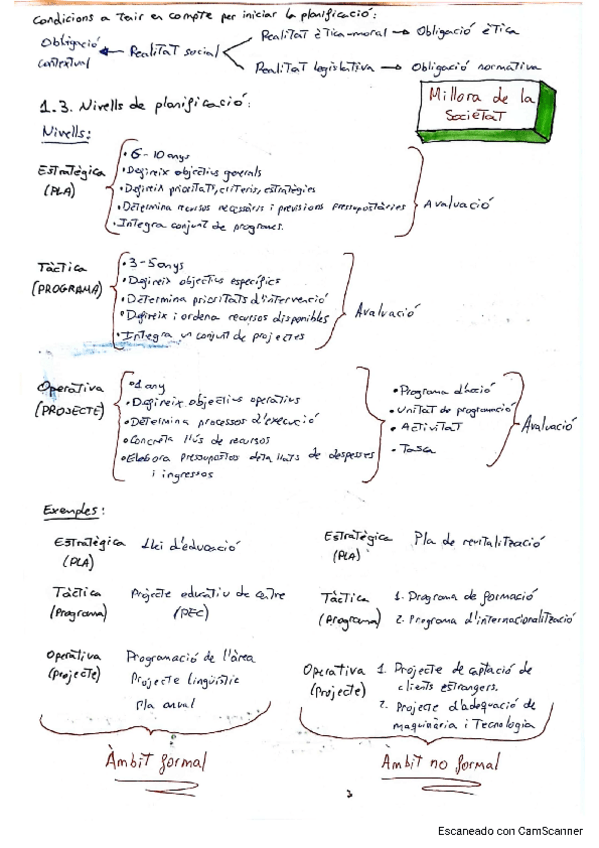 Condicions a tenir en compte per iniciar la planificació:
Obligació contextual ← Realitat social
Realitat ètica-moral → Obligació ètica
Realitat legislativa → Obligació normativa
Millora de la
Societat
1.3. Nivells de planificació:
Nivells:
Estratègica
(PLA)
• 6-10 anys
• Defineix objectius generals
• Defineix prioritats, criteris, estratègies
• Determina recursos necessàris i previsions pressupostàries
• Integra conjunt de programes.
Avaluació
Tàctica
(PROGRAMA)
• 3-5 anys
• Defineix objectius específics
• Determina prioritats d'intervenció
• Defineix i ordena recursos disponibles
• Integra un conjunt de projectes
Avaluació
Operativa
(PROJECTE)
• 1 any
• Defineix objectius operatius
• Determina processos d'execució
• Concreta l'ús de recursos
• Elabora pressupostos detallats de despeses
i ingressos
• Programa d'acció
• Unitat de programació
• Activitat
• Tasca
Avaluació
Exemples:
Estratègica
(PLA)
Llei d'educació
Tàctica
(Programa)
Projecte educatiu de centre
(PEC)
Operativa
(projecte)
Programació de l'àrea
Projecte lingüístic
Pla anual
Àmbit formal
Estratègica
(PLA)
Pla de revitalització
Tàctica
(Programa)
1. Programa de formació
2. Programa d'internacionalització
Operativa
(Projecte)
1. Projecte de captació de
clients estrangers.
2. Projecte d'adequació de
maquinària i Tecnologia
Àmbit no formal
3
Escaneado con CamScanner